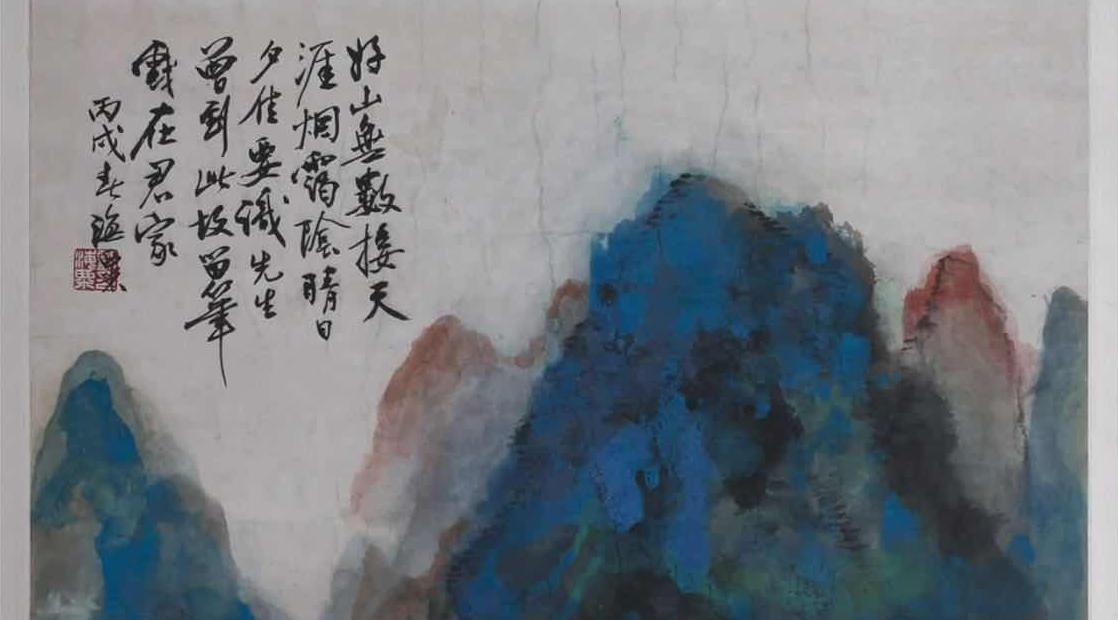 好山無數接天
涯烟靄陰晴日
夕佳要識先生
曾到此故留筆
戲在君家
丙戌春海粟